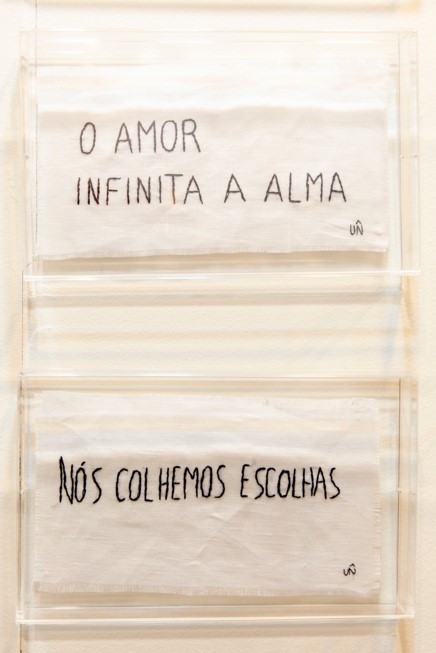 O AMOR
INFINITA A ALMA
UÑ
NÓS COLHEMOS ESCOLHAS
UÑ